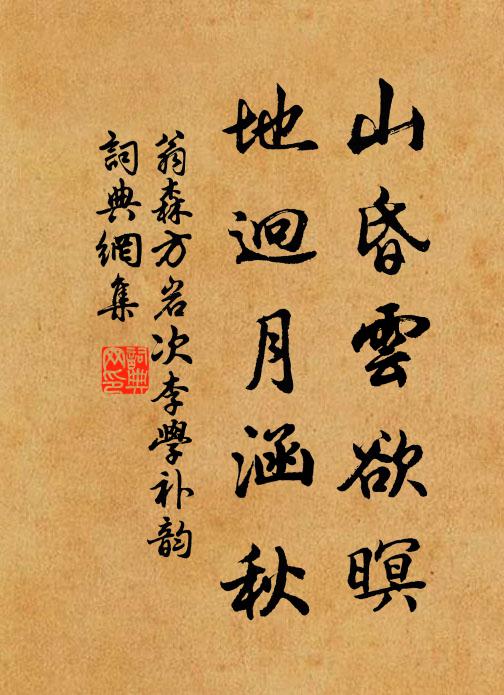 山昏雲欲暝
地迥月涵秋
翁森方岩次李學补韵
詞典網集
詞典網印